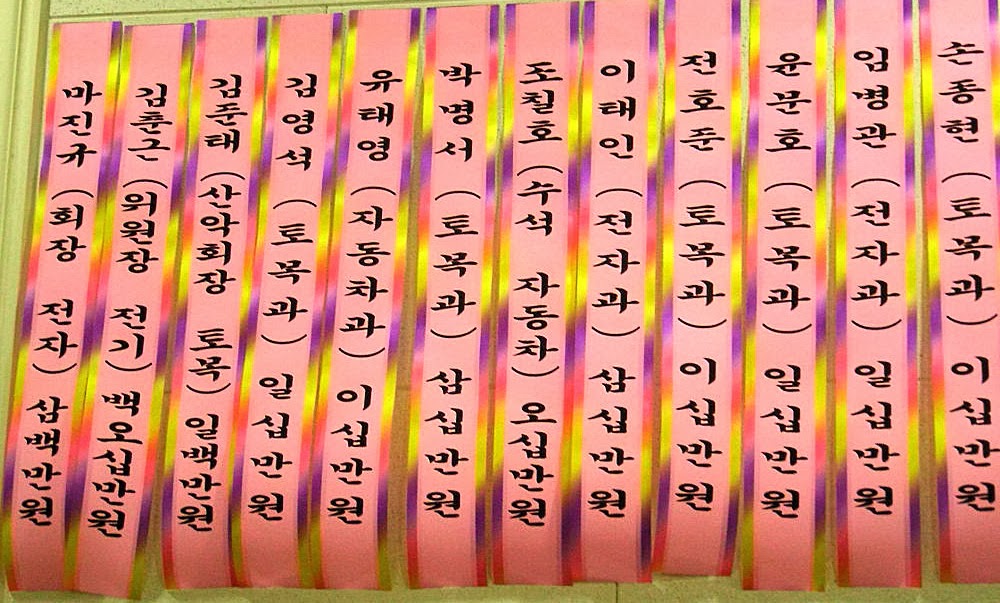 마진규 (회장 전자) 삼백만원
김춘근 (위원장 전기) 백오십만원
김준태 (산악회장 토목) 일백만원
김영석 (토목과) 일십만원
유태영 (자동차과) 이십만원
박명서 (토목과) 삼십만원
조철호 (수석 자동차) 오십만원
이태인 (전자과) 삼십만원
전호준 (토목과) 이십만원
윤문호 (토목과) 일십만원
임병관 (전자과) 일십만원
손종현 (토목과) 이십만원